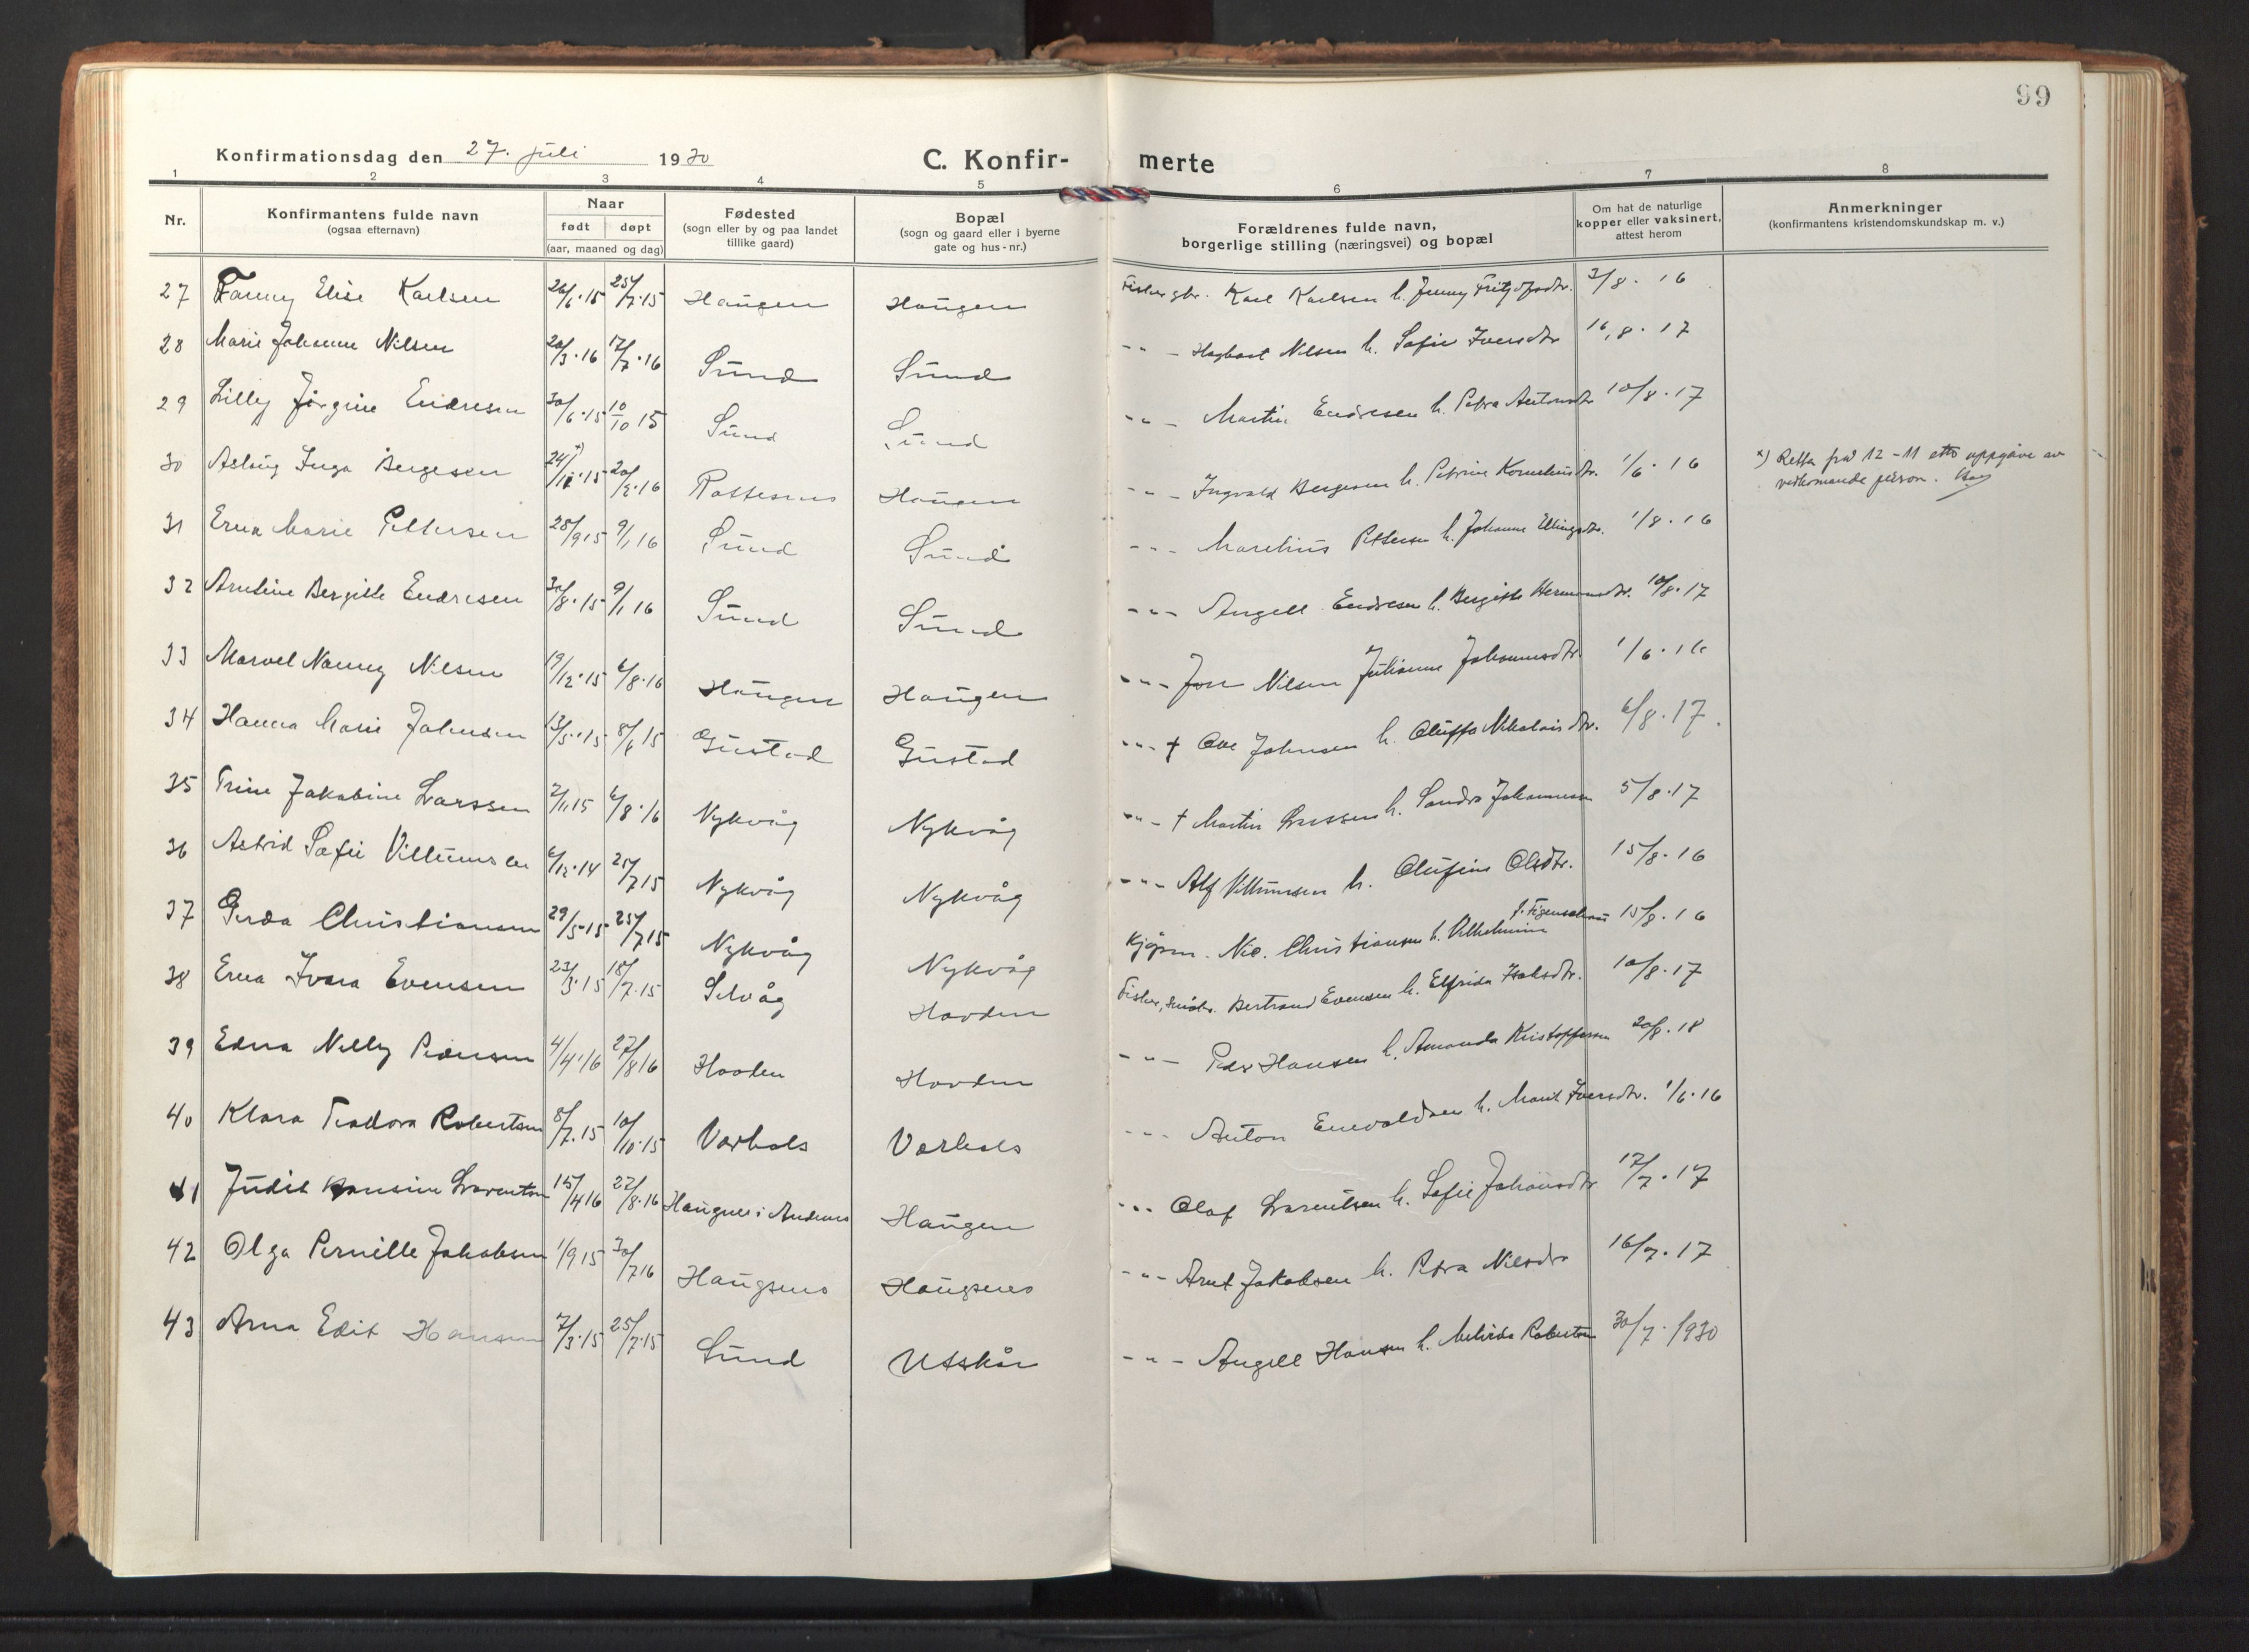 99
Konfirmationsdag den 27. juli 1930 C. Konfir- merte
1 2 3 4 5 6 7 8
Nr. Konfirmantens fulde navn (ogsaa efternavn) Naar født døpt (aar, maaned og dag) Fødested (sogn eller by og paa landet tillike gaard) Bopæl (sogn og gaard eller i byerne gate og hus-nr.) Forældrenes fulde navn, borgerlige stilling (næringsvei) og bopæl Om hat de naturlige kopper eller vaksinert, attest herom Anmerkninger (konfirmantens kristendomskundskap m. v.)
27 Fanny Elise Karlsen 26/6.15 25/7.15 Haugen Haugen Fisker gbr. Karl Karlsen h. Jenny 3/8. 16
28 Marie Johanne Nilsen 20/3.16 17/7.16 Sund Sund -"- Hagbart Nilsen h. Sofie Iversdtr 16/8.17
29 Lilly Jørgine Endresen 30/6.15 10/10 15 Sund Sund -"- Martin Endresen h. Petra Antonsdtr 10/8.17
30 Aslaug Inga Bergesen 24/11.15 20/2.16 Haugen -"- Ingvald Bergesen h. Petrine Korneliusdtr. 1/6.16 x) Retta frå 12-11 etter uppgåve av
vedkomande person.
31 Erna Marie Pettersen 28/9 15 9/1 16 Sund Sund -"- Marelius Pettersen h. Johanne Ellingsdtr. 1/8.16
32 Arntine Bergitte Endresen 30/8.15 9/1 16 Sund Sund -"- Angell Endresen h. Bergitte Hermansdtr. 10/8.17
33 Marvel Nanny Nilsen 19/12.15 6/8.16 Haugen Haugen -"- Jon Nilsen Julianne Johannesdtr. 1/6.16
34 Hanna Marie Johnsen 13/5.15 8/8 15 Gustad Gustad -"- † Ove Johnsen h. Oluffa Nikolaisdtr. 6/8.17.
35 Trine Jakobine Larssen 2/11 15 6/8.16 Nykvåg Nykvåg -"- † Martin Larssen h. Sandra Johannesen 5/8.17
36 Astrid Sofie Villumsen 6/12.14 25/7 15 Nykvåg Nykvåg -"- Alf Villumsen h. Olufine Olsdtr. 15/8.16
37 Gerda Christiansen 29/5.15 25/7 15 Nykvåg Nykvåg Kjøpm. Nic. Christiansen h. Vilhelmine f. Figenschau 15/8.16
38 Erna Ivara Evensen 23/3.15 18/7.15 Selvåg Hovden Fisker, Bertrand Evensen h. Elfrida Isaksdtr. 10/8.17
39 Edna Nelly Pedersen 4/4.16 27/8 16 Hovden Hovden -"- Peder Hansen h. Amanda Kristoffersen 20/8.18
40 Klara Teodora Robertsen 8/7.15 10/10.15 Vorhals Vorhals -"- Anton Enevoldsen h. Marit Iversdtr. 1/6.16
41 Judit Hansine Lorentsen 15/4 16 27/8.16 Haugnes i Andenes Haugen -"- Olaf Lorentsen h. Sofie Johansdtr 17/7.17
42 Olga Pernille Jakobsen 1/9 15 30/7 16 Haugsnes Haugsnes -"- Arnt Jakobsen h. Petra Nilsdtr 16/7.17
43 Arna Edit Hansen 7/3.15 25/7.15 Sund Utskår -"- Angell Hansen h. Robertsen 30/7.1930